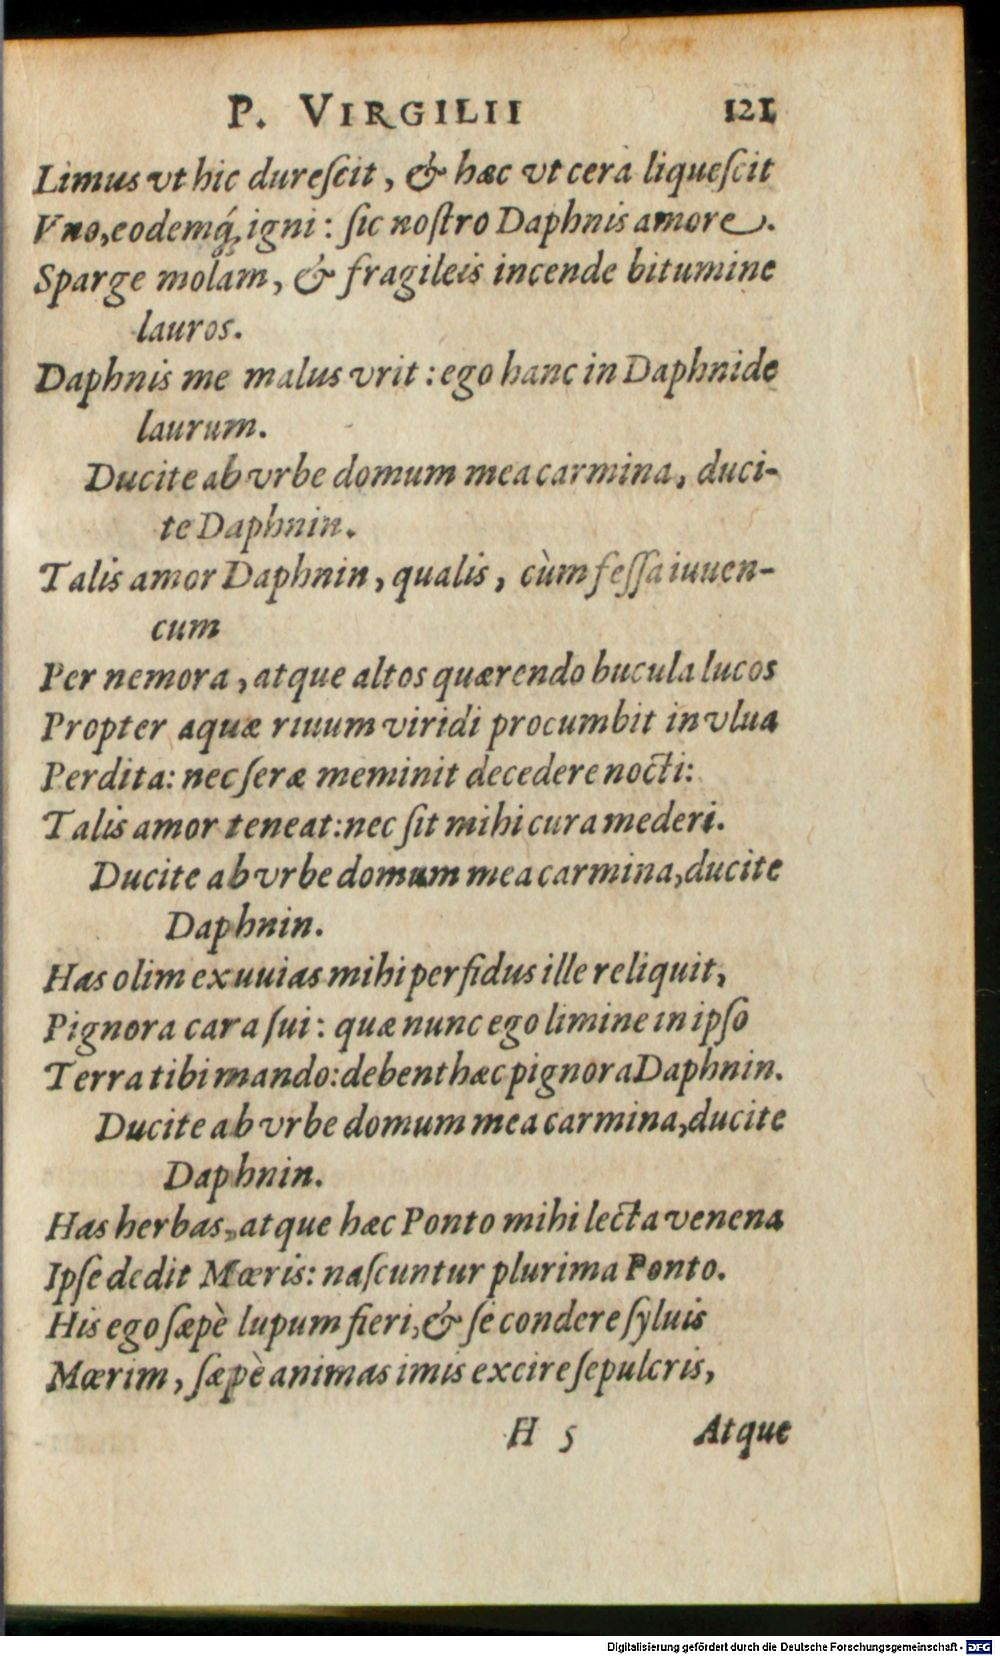 P. VIRGILII 121
Limus vt hic dureſcit, & hæc vt cera liqueſcit
Vno, eodemq́ꝫ igni: ſic noſtro Daphnis amore.
Sparge molam, & fragileis incende bitumine
lauros.
Daphnis me malus vrit: ego hanc in Daphnide
laurum.
Ducite ab vrbe domum mea carmina, duci-
te Daphnin.
Talis amor Daphnin, qualis, cùm feſſa iuuen-
cum
Per nemora, atque altos quærendo bucula lucos
Propter aquæ riuum viridi procumbit in vlua
Perdita: nec ſeræ meminit decedere nocti:
Talis amor teneat: nec ſit mihi cura mederi.
Ducite ab vrbe domum mea carmina, ducite
Daphnin.
Has olim exuuias mihi perfidus ille reliquit,
Pignora cara ſui: quæ nunc ego limine in ipſo
Terra tibi mando: debent hæc pignora Daphnin.
Ducite ab vrbe domum mea carmina, ducite
Daphnin.
Has herbas, atque hæc Ponto mihi lecta venena
Ipſe dedit Mœris: naſcuntur plurima Ponto.
His ego ſæpè lupum fieri, & ſe condere ſyluis
Mœrim, ſæpè animas imis excire ſepulcris,
H 5 Atque
Digitalisierung gefördert durch die Deutsche Forschungsgemeinschaft - DFG